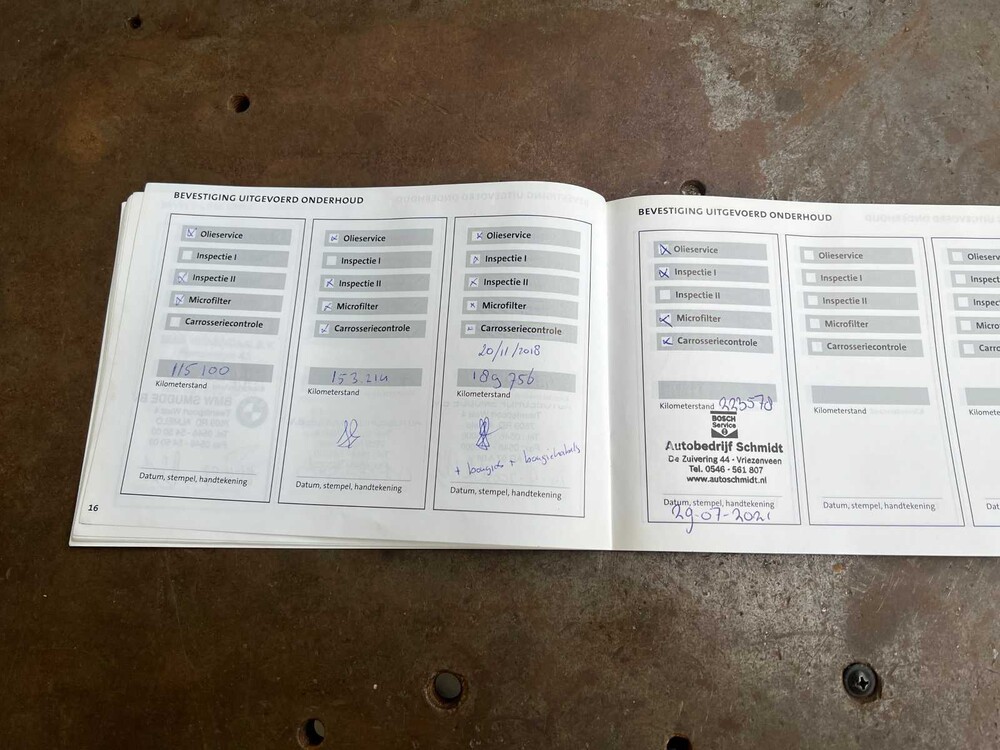 BEVESTIGING UITGEVOERD ONDERHOUD
Olieservice
Inspectie I
Inspectie II
Microfilter
Carrosseriecontrole
115100
Kilometerstand
Datum, stempel, handtekening
Olieservice
Inspectie I
Inspectie II
Microfilter
Carrosseriecontrole
153.214
Kilometerstand
Datum, stempel, handtekening
Olieservice
Inspectie I
Inspectie II
Microfilter
Carrosseriecontrole
20/11/2018
189 756
Kilometerstand
+ bougies + bougiekabels
Datum, stempel, handtekening
16
BEVESTIGING UITGEVOERD ONDERHOUD
Olieservice
Inspectie I
Inspectie II
Microfilter
Carrosseriecontrole
Kilometerstand 223578
BOSCH
Service
Autobedrijf Schmidt
De Zuivering 44 - Vriezenveen
Tel. 0546 - 561 807
www.autoschmidt.nl
Datum, stempel, handtekening
29-07-2021
Olieservice
Inspectie I
Inspectie II
Microfilter
Carrosseriecontrole
Kilometerstand
Datum, stempel, handtekening